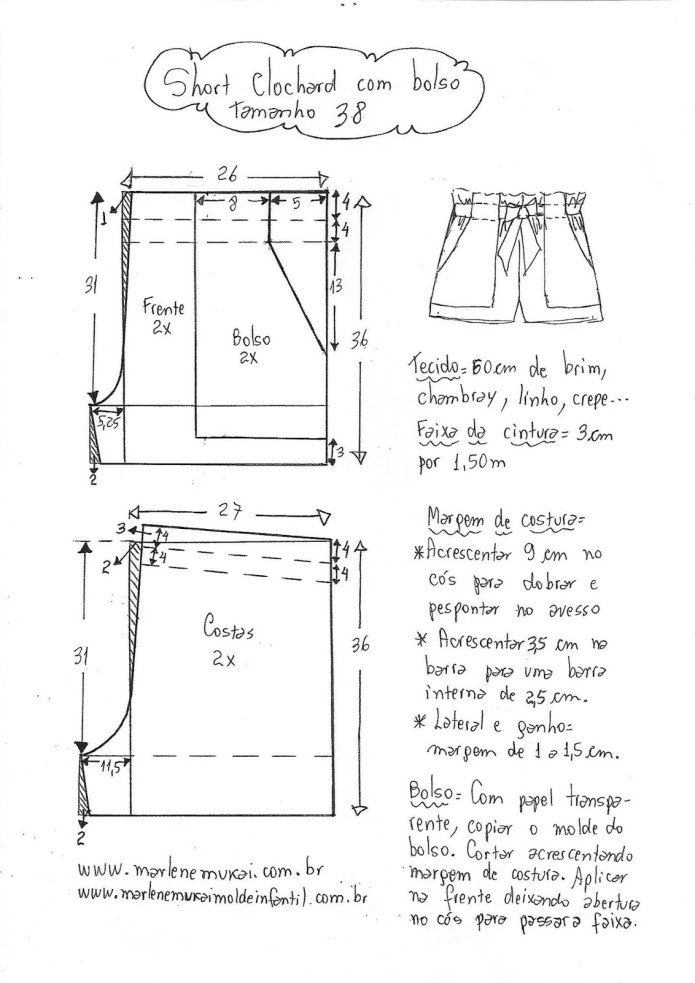 Short Clochard com bolso
tamanho 38
26
8
5
4
4
1
31
13
Frente
2x
Bolso
2x
36
5,25
3
2
Tecido= 50cm de brim,
chambray, linho, crepe...
Faixa da cintura= 3cm
por 1,50m
27
3
4
4
4
4
2
Costas
2x
31
36
11,5
2
Margem de costura=
*Acrescentar 9 cm no
cós para dobrar e
pespontar no avesso
* Acrescentar 3,5 cm na
barra para uma barra
interna de 2,5 cm.
* Lateral e ganho=
margem de 1 a 1,5 cm.
Bolso= Com papel transpa-
rente, copiar o molde do
bolso. Cortar acrescentando
margem de costura. Aplicar
na frente deixando abertura
no cós para passar a faixa.
www.marlenemukai.com.br
www.marlenemukaimoldeinfantil.com.br